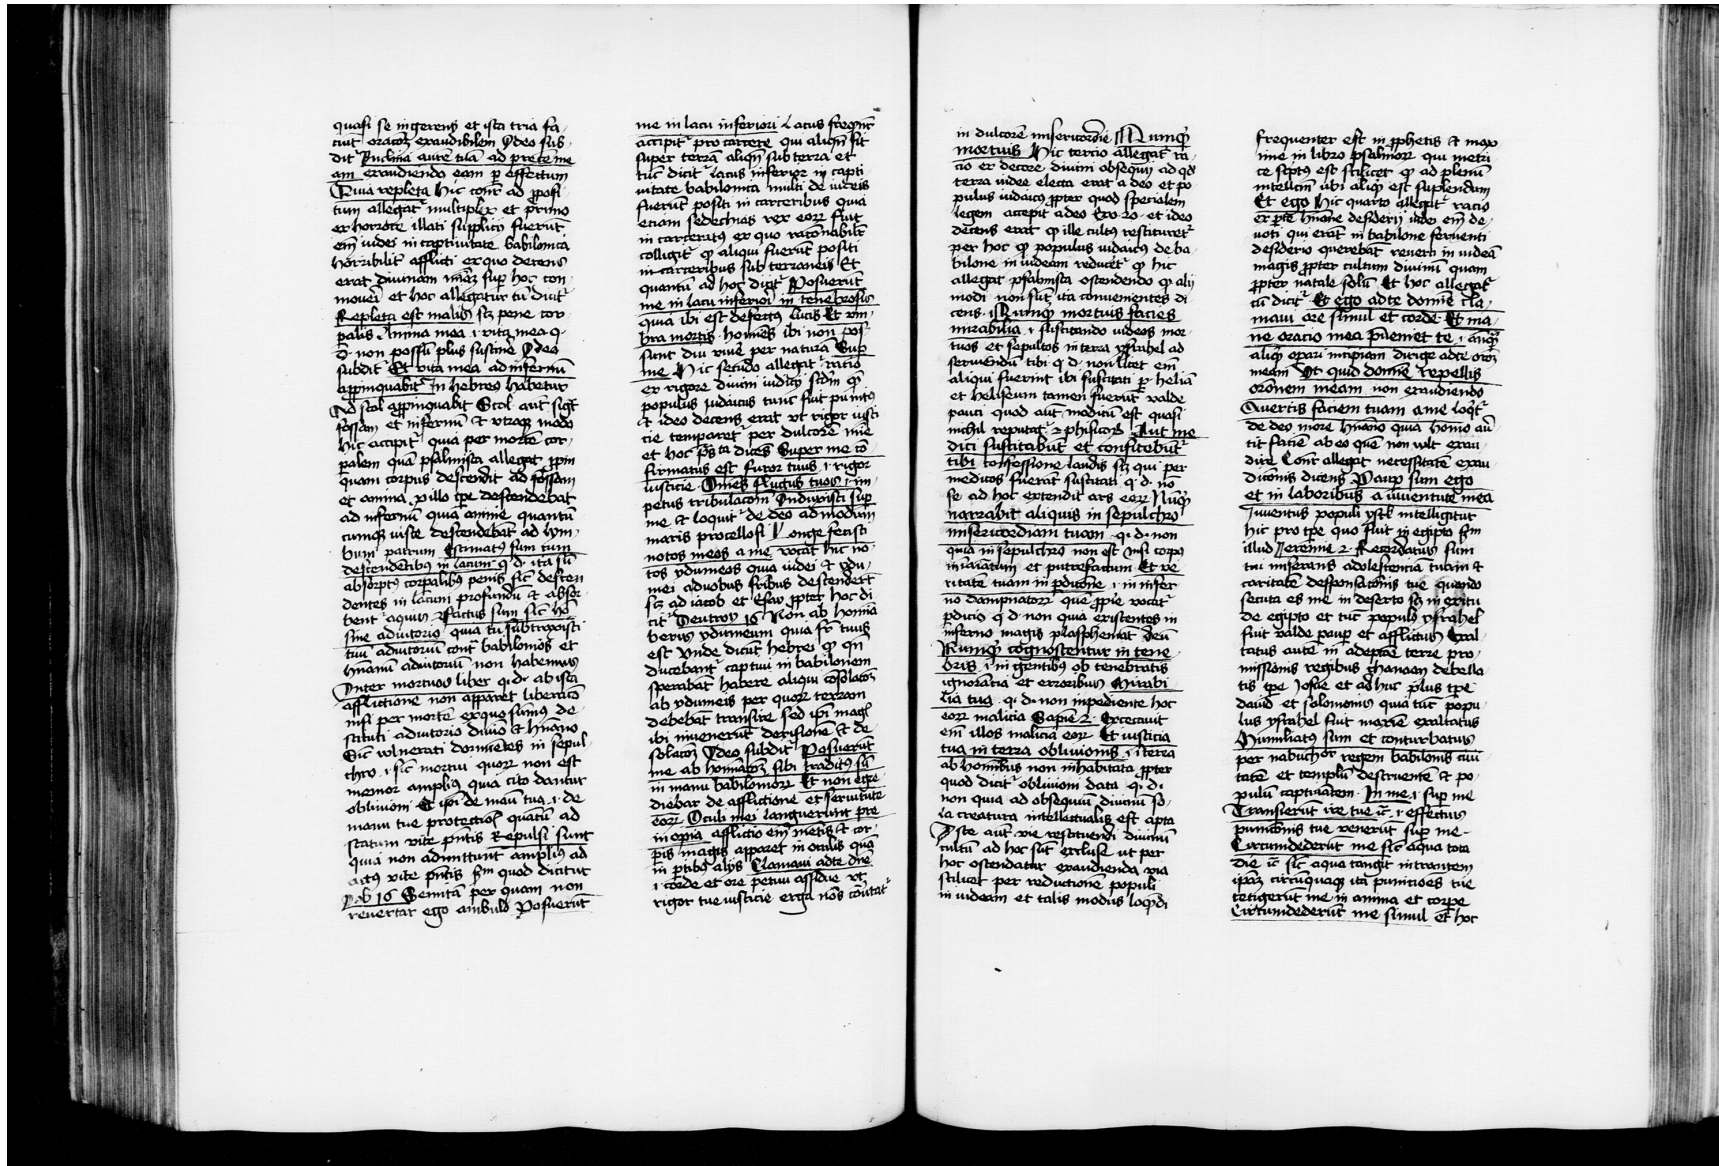 quasi se ingerens et ista tria fa-
ciūt oracōȝ exaudibilem Ideo sub-
dit Inclina aurē tuā ad precē me
am exaudiendo eam ꝑ effectum
Quia repleta hic cont̄ ad ꝓposi
tum allegat᷑ multiplex et primo
ex horrore illati supplicij fuerūt
em̄ iudei in captiuitate babilonica
horribilit᷑ afflicti ex quo decens
erat diuinam mīaȝ suꝑ hoc con-
moueri et hoc allegatur cū dicit᷑
Repleta est malis scȝ pene cor
palis Anima mea .i. vita mea q.
d. non possū plus sustinē Ideo
subdit᷑ Et vita mea ad infernū
appīnquabit᷑ In hebreo habetur
Ad scol appropinquabit Scol aut̄ sigt᷑
fossam et infernū et utroqȝ modo
hic accipit᷑ quia per mortē cor-
palem quā psalmista allegat ꝓpin
quam corpus descendit ad fossam
et anima ꝓ illo tꝑe descendebat
ad infernū quia anime quantū
cumqȝ iuste descendebāt ad lym-
bum patrum Estimatus sum cum
descendētibus in lacum q. d. ita sū
absorptus corpalibus penis sic̄ descen
dentes in lacum profundū et absor-
bent᷑ aquis Factus sum sic̄ hō
sine adiutorio quia tu subtraxisti
tuū adiutoriū cont᷑ babilonios et
humanū adiutoriū non habemus
Inter mortuos liber q. d. ab ista
afflictione non apparet liberacō
nisi per mortē ex quo sumus de-
stituti adiutorio diuīo et humano
Sic̄ vulnerati dormiētes in sepul-
chro .i. sic̄ mortui quorȝ non est
memor amplius quia cito dantur
obliuioni Et ipī de manu tua .i. de
manu tue protectiois quātū ad
statum vite p̄ntis Repulsi sunt
quia non admittunt᷑ amplius ad
actus vite p̄ntis scd̄m quod dicitur
Iob 16 Semitā per quam non
reuertar ego ambulo Posuerūt
me in lacu inferiori Lacus freq̄nt᷑
accipit᷑ pro carcere qui aliqn̄ fit
super terrā aliqn̄ sub terra et
tūc dicit᷑ lacus inferior in capti-
uitate babilonica multi de iudeis
fuerūt positi in carceribus quia
etiam sedechias rex eorȝ fuit
in carceratus ex quo racōnabilit᷑
colligit᷑ qȝ aliqui fuerūt positi
in carceribus sub terraneis Et
quantū ad hoc dicit᷑ Posuerūt
me in lacu inferiori in tenebrosis
quia ibi est defectus lucis Et vm-
bra mortis homines ibi non pos-
sunt diu viuē per naturā Sup̄
me Hic secūdo allegat᷑ ratio
ex rigore diuini iudicij scdm̄ qȝ
populus iudaicus tunc fuit punitus
et ideo decens erat vt rigor iusti
cie temparet᷑ per dulcorē mīe
et hoc dices Super me cō-
firmatus est furor tuus .i. rigor
iusticie Omēs fluctus tuos .i. im-
petus tribulacōm Induxisti suꝑ
me et loquit᷑ de deo ad modum
maris procellosi Longe fecisti
notos meos a me vocat hic no-
tos ydumeos quia iudei et ydu-
mei a duobus fribus descenderūt
scȝ ad iacob et Esau ꝓpter hoc di
cit᷑ Deutroy 16 Non ab homīa
beris ydumeum quia fr̄ tuus
est Vnde dicūt hebrei qȝ qn̄
ducebant᷑ captiui in babilonem
sperabāt habere aliqui cōsolacōȝ
ab ydumeis per quorȝ terram
debebāt transire sed ipī mag᷑
ibi inuenerūt derisione et de-
solacōȝ Ideo subdit᷑ Posuerūt
me abhomīacōȝ sibi traditus sū
in manu babiloniorȝ Et non egre
diebar de afflictione et seruitute
eorȝ Oculi mei languerunt pre
inopia afflictio em̄ mētis et cor-
pis magis apparet in oculis quā
in ptibus alijs Clamaui ad te dn̄e
.i. corde et ore petiui assidue vt
rigor tue iusticie erga nos cōutat᷑
in dulcorē misericordie Nunquid
mortuis Hic tercio allegat᷑ ra-
cio ex decore diuini obsequij ad qd̄
terra iudee electa erat a deo et po
pulus iudaicus ꝓpter quod specialem
legem accepit a deo Exo 20 et ideo
decens erat qȝ ille cultus restitueret᷑
per hoc qȝ populus iudaicus de ba-
bilone in iudeam reducet᷑ qȝ hic
allegat psalmista ostendendo qȝ alij
modi non sūt ita conuenientes di
cens Nunquid mortuis facies
mirabilia .i. suscitando iudeos mor-
tuos et sepultos in terra ysrahel ad
seruiendū tibi q. d. non licet em̄
aliqui fuerint ibi suscitati ꝑ heliā
et heliseum tamen fuerūt valde
pauci quod aut̄ modicū est quasi
nichil reputat᷑ 2 phisicorȝ Aut me
dici suscitabūt et confitebūt᷑
tibi confessione laudis scȝ qui per
medicos fuerāt suscitati q. d. nō
se ad hoc extendit ars eorȝ Nūqd̄
narrabit aliquis in sepulchro
misericordiam tuam q. d. non
quia in sepulchro non est nisi corpus
inaīatum et putrefactum Et ve
ritatē tuam in ꝑdicōne .i. in infer-
no dampnatorȝ quē ꝓprie vocat᷑
ꝑdicio q. d. non quia existentes in
inferno magis plasphemāt deū
Nunqȝ cognoscentur in tene
bris .i. in gentibus ob tenebratis
ignorātia et erroribus Mirabi-
lia tua q. d. non inpediente hoc
eorȝ malicia Sapie 2 Excecauit
em̄ illos malicia eorȝ Et iusticia
tua in terra obliuionis .i. terra
ab hominibus non inhabitata ꝓpter
quod dicit᷑ obliuioni data q. d.
non quia ad obsequiū diuinū so-
la creatura intellectualis est apta
Iste aut̄ vie restituendi diuinū
cultū ad hoc sūt excluse ut per
hoc ostendatur exaudienda via
scilicet per reductionē populi
in iudeam et talis modus loqūdi
frequenter est in ꝓphetis et max
ime in libro psalmorȝ qui metri
ce scriptus est scilicet qȝ ad plenū
intellectū ubi aliqȝ est suplendum
Et ego Hic quarto allegat᷑ racio
ex pte hmōne desiderij iudei em̄ de-
uoti qui erāt in babilone feruenti
desiderio querebāt reuerti in iudeā
magis ꝓpter cultum diuinū quam
ꝓpter natale solū Et hoc allegat᷑
cū dicit᷑ Et ego ad te domīe cla-
maui ore simul et corde Et ma-
ne oracio mea p̄ueniet te .i. anteqȝ
aliqȝ opari incipiam dirige ad te oroȝ
meam Vt quid domīe repellis
oronēm meam non exaudiendo
Auertis faciem tuam a me loqt᷑
de deo more humano quia homo au
tit faciē ab eo quē non vult exau-
dire Cont᷑ allegat necessitatē exau
ditonis dicens Pauꝑ sum ego
et in laboribus a iuuentute mea
Iuuentus populi ysrl̄ intelligitur
hic pro tꝑe quo fuit in egipto scd̄m
illud Ieremie 2 Recordatus sum
tui miserans adolescentia tuam et
caritatē desponsatonis tue quando
secuta es me in deserto scȝ in exitu
de egipto et tūc populus ysrahel
fuit valde pauꝑ et afflictus Exal-
tatus aute in adeptōe terre pro-
missionis regibus chanaan debella-
tis tꝑe Iosue et adhuc plus tꝑe
dauid et solomonis quia tūc popu-
lus ysrahel fuit maxīe exaltatus
Humiliatus sum et conturbatus
per nabuchor regem babilonis ciui
tatē et templū destruentē et po-
pulum captiuātem In me .i. suꝑ me
Transierūt ire tue .i. effectus
punicōnis tue venerūt suꝑ me
Circumdederūt me sic̄ aqua tota
die sic̄ aqua tangit intrantem
ipāȝ circūquaqȝ ita punicioēs tue
tetigerūt me in anima et corpe
Circumdederūt me simul et hoc